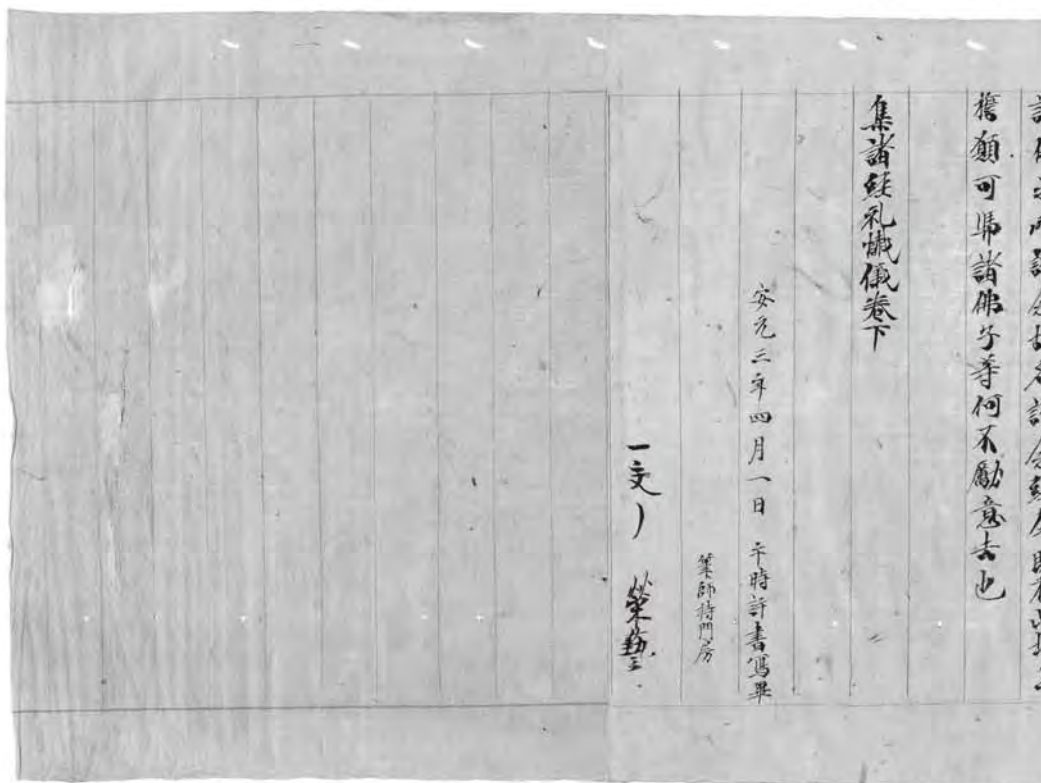 擔願可馮諸佛子等何不勵意去也
集諸経礼懴儀卷下
安元三年四月一日 午時許書寫畢
藥師持門房
一交 榮藝